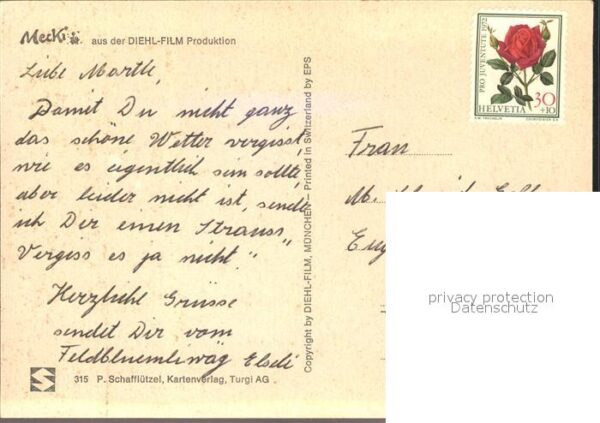 Mecki aus der DIEHL-FILM Produktion
Liebe Martle,
Damit Du nicht ganz
das schöne Wetter vergisst,
wie es eigentlich sein sollte
aber leider nicht ist, sende
ich Dir einen Strauss „
Vergiss es ja nicht."
Herzliche Grüsse
sendet Dir vom
Feldbluemliwäg Elseli
315 P. Schafflützel, Kartenverlag, Turgi AG
Copyright by DIEHL-FILM, MÜNCHEN – Printed in Switzerland by EPS
PRO JUVENTUTE 1972
30
+10
HELVETIA
COURVOISIER S.A.
Frau
M.
privacy protection
Datenschutz